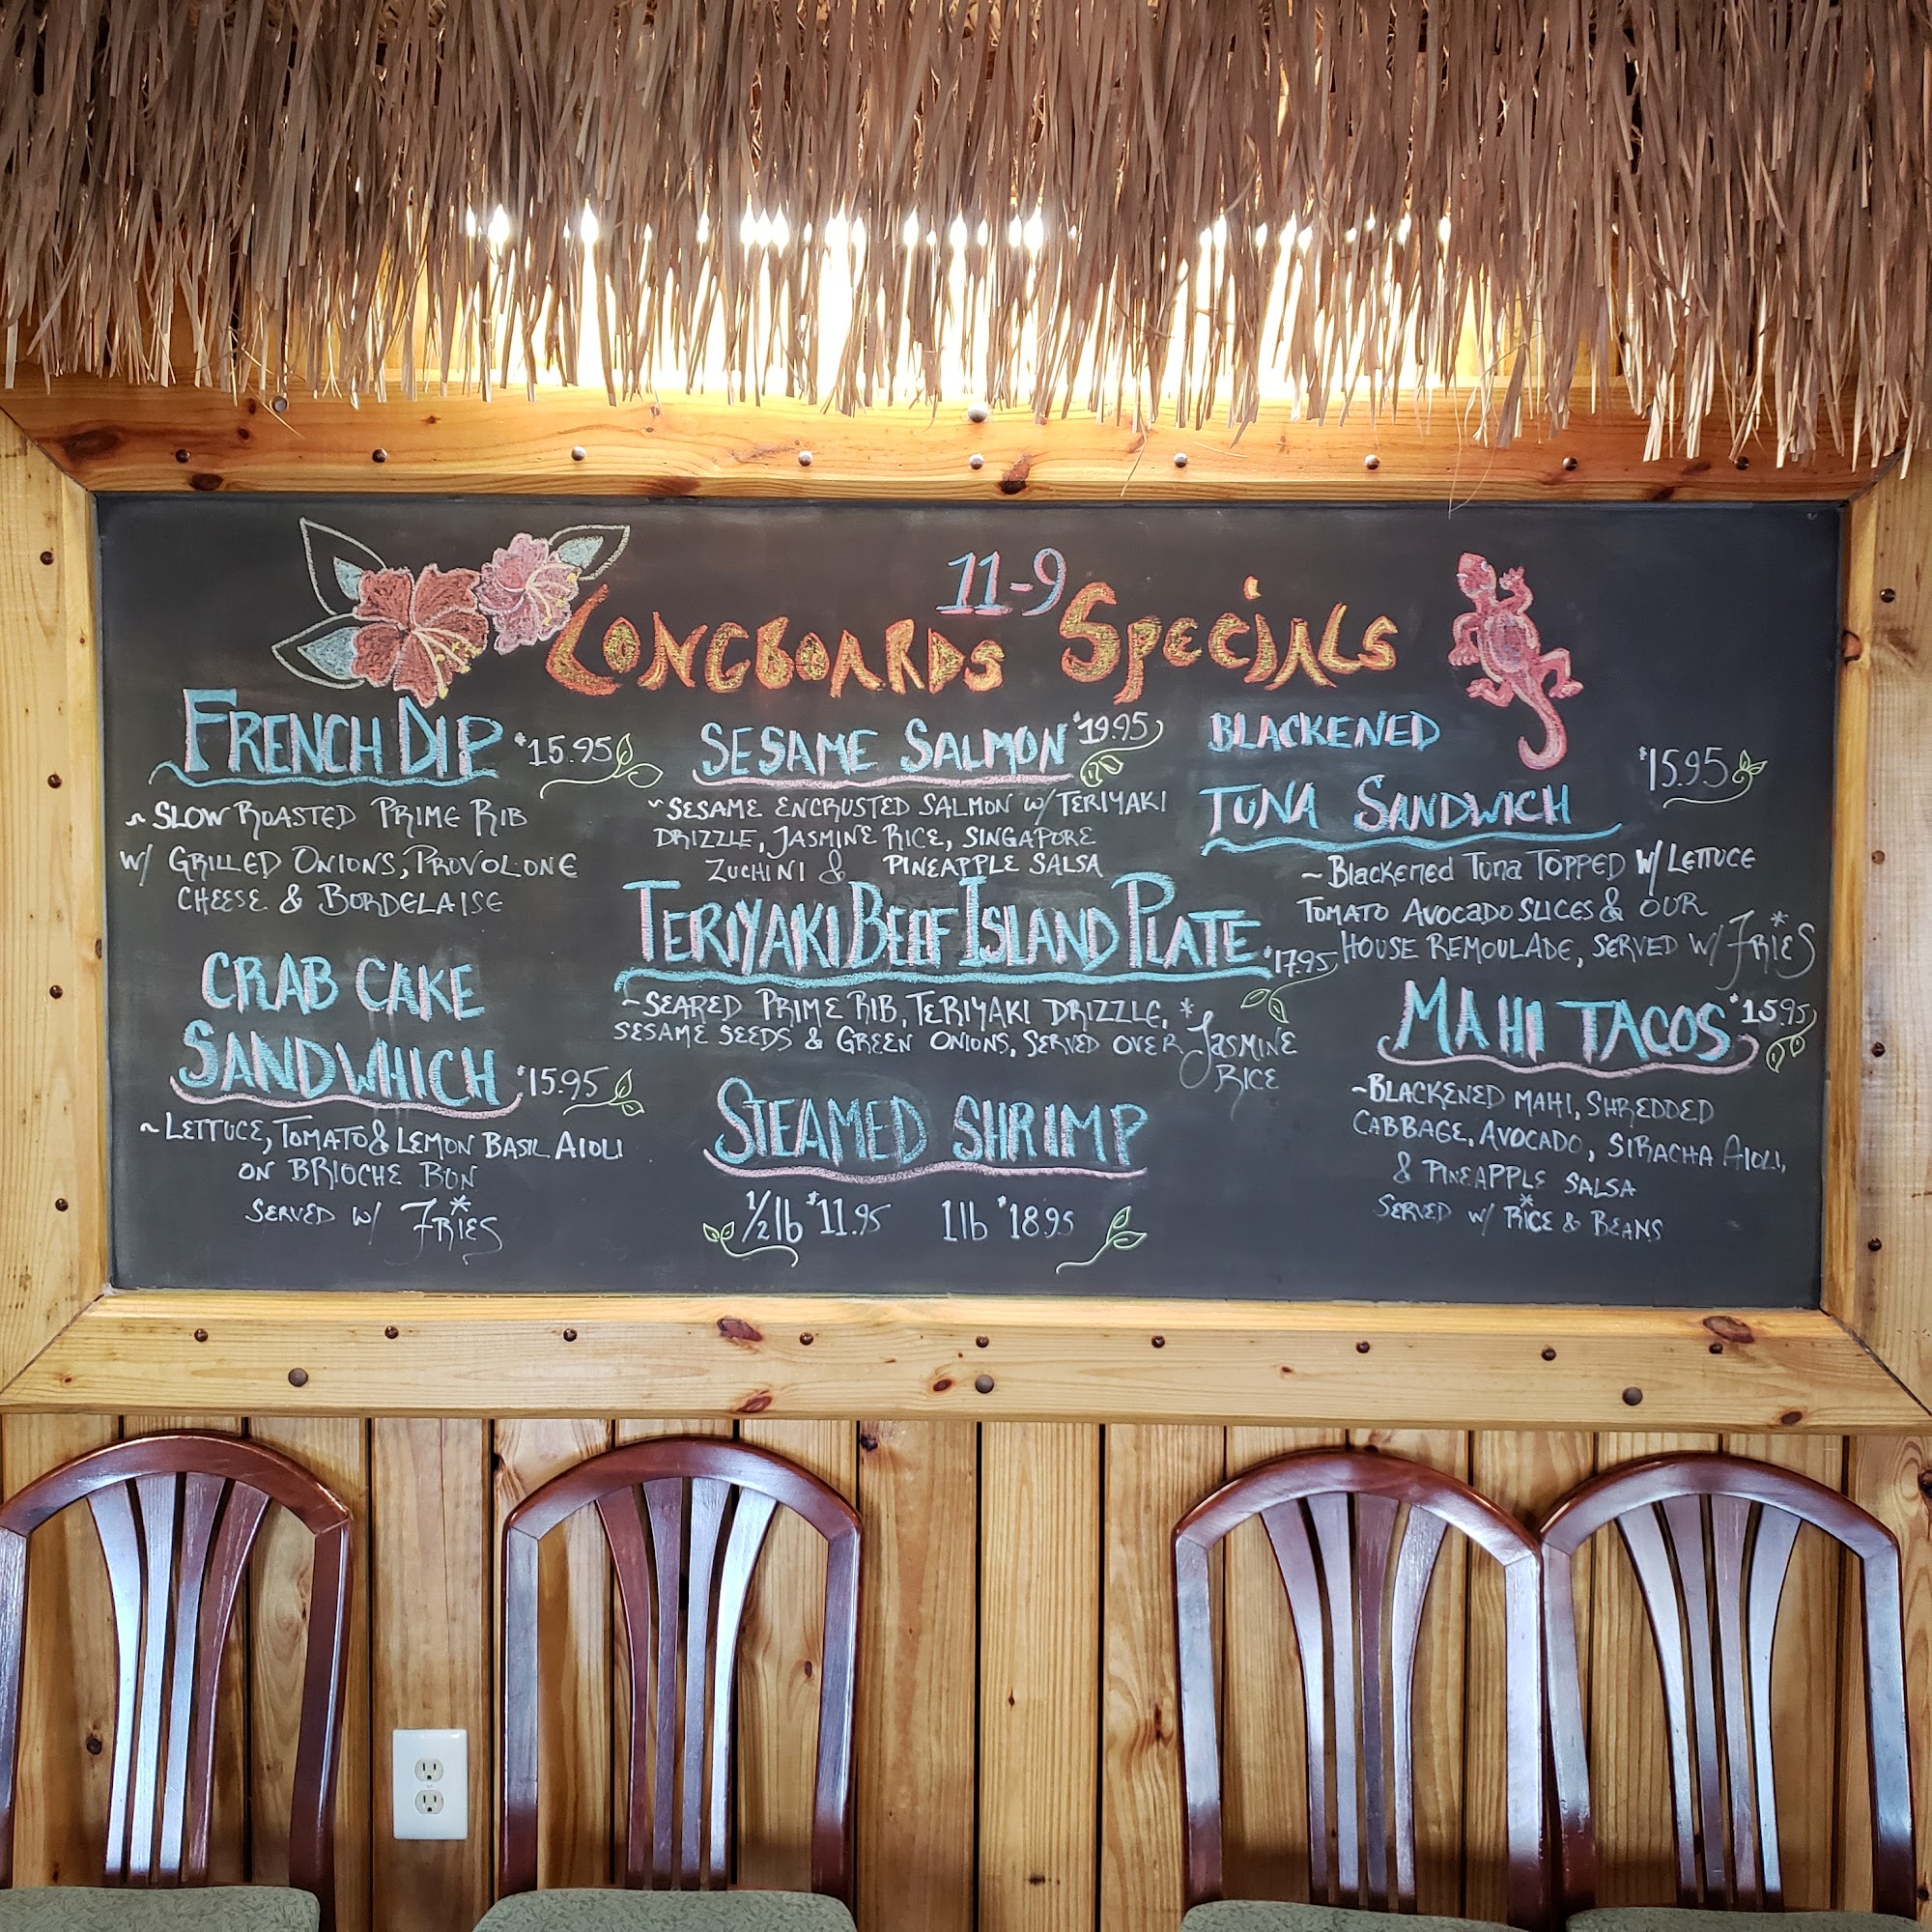 11-9
LONGBOARDS SPECIALS
FRENCH DIP $15.95
~ SLOW ROASTED PRIME RIB
W/ GRILLED ONIONS, PROVOLONE
CHEESE & BORDELAISE
CRAB CAKE
SANDWHICH $15.95
~ LETTUCE, TOMATO & LEMON BASIL AIOLI
ON BRIOCHE BUN
SERVED W/ FRIES*
SESAME SALMON $19.95
~SESAME ENCRUSTED SALMON W/ TERIYAKI
DRIZZLE, JASMINE RICE, SINGAPORE
ZUCHINI & PINEAPPLE SALSA
TERIYAKI BEEF ISLAND PLATE $17.95
~SEARED PRIME RIB, TERIYAKI DRIZZLE, *
SESAME SEEDS & GREEN ONIONS, SERVED OVER JASMINE
RICE
STEAMED SHRIMP
1/2 lb $11.95 1 lb $18.95
BLACKENED
TUNA SANDWICH $15.95
~ Blackened Tuna TOPPED W/ LETTUCE
TOMATO AVOCADO SLICES & OUR
HOUSE REMOULADE, SERVED W/ FRIES*
MAHI TACOS $15.95
~BLACKENED MAHI, SHREDDED
CABBAGE, AVOCADO, SIRACHA AIOLI,
& PINEAPPLE SALSA
SERVED W/ RICE* & BEANS